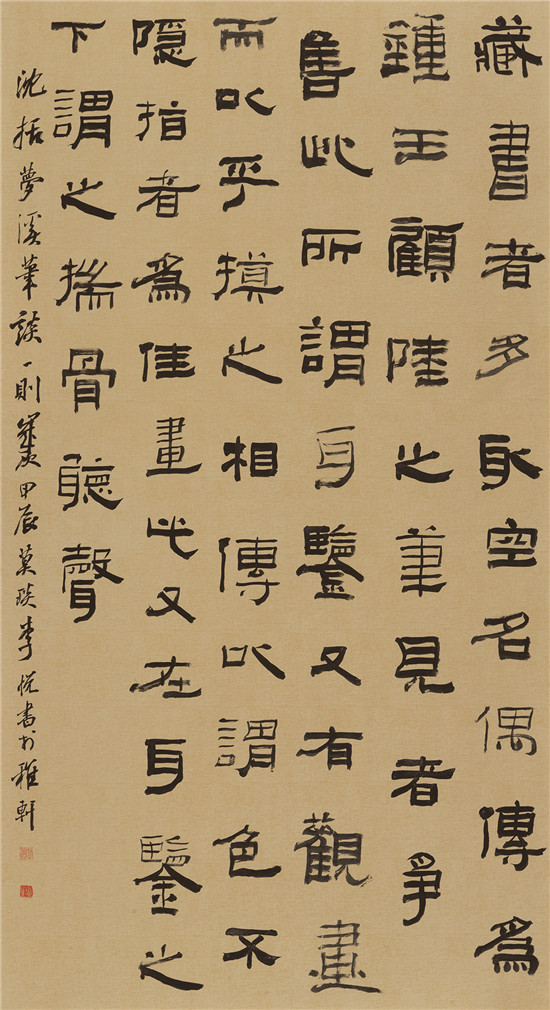 藏書者多取空名偶傳爲
鍾王顧陸之筆見者爭
售此所謂耳鑒又有觀畫
而以手摸之相傳以謂色不
隱指者爲佳畫此又在耳鑒之
下謂之揣骨聽聲
沈括夢溪筆談一則 甲辰莫李悅書於雅軒